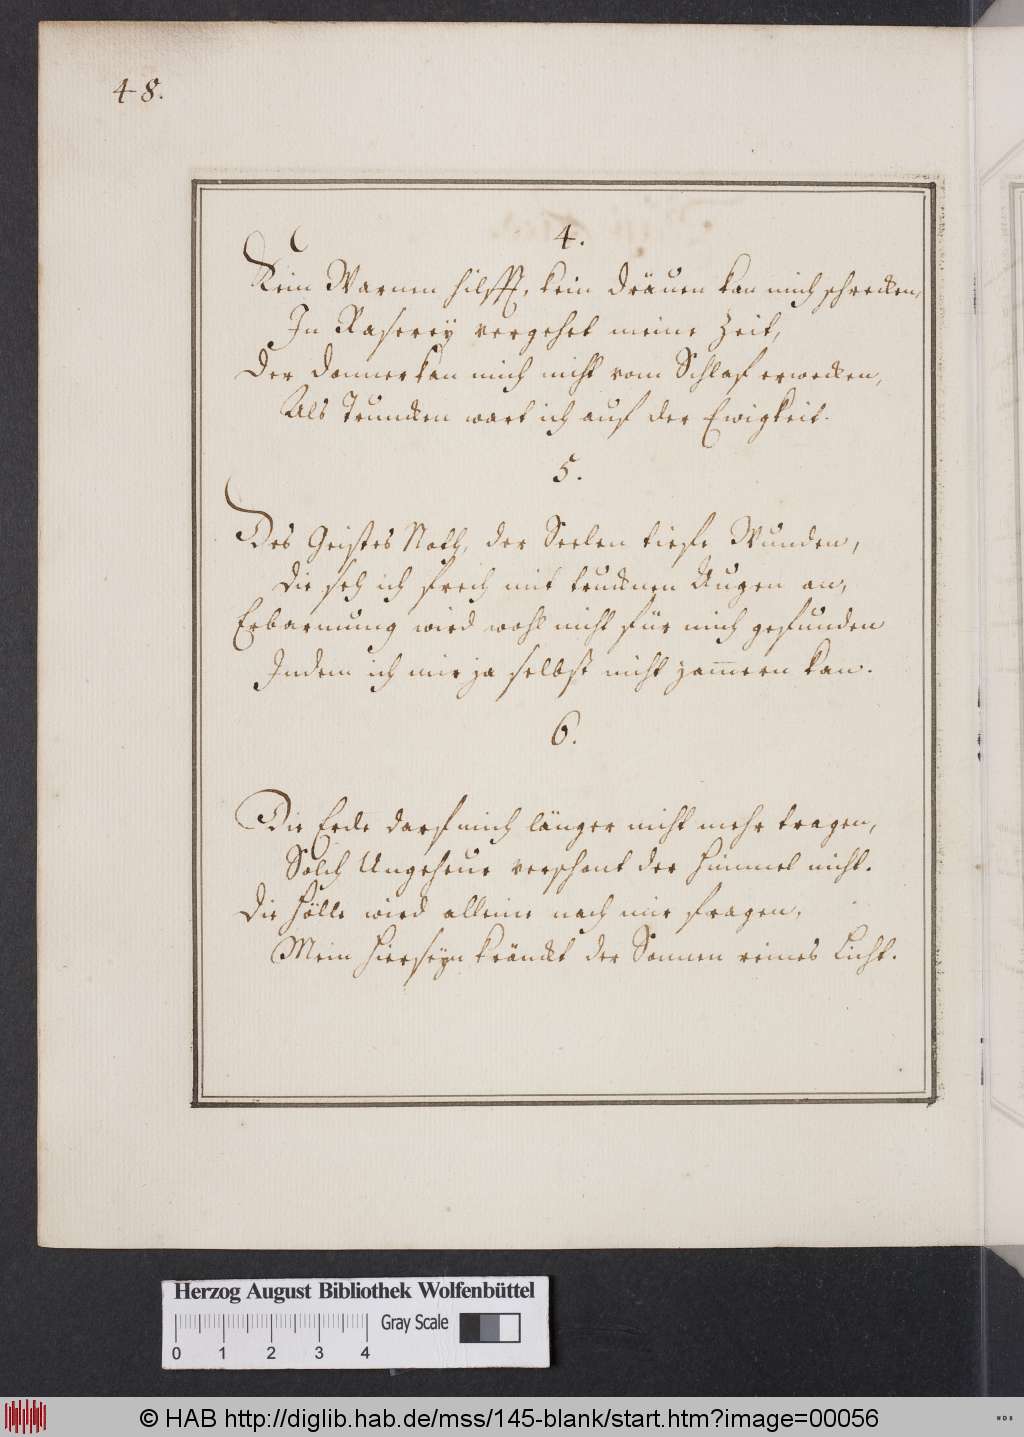 48.
4.
Kein Warnen hilfft, kein dräuen kan mich schrecken,
In Raserey vergehet meine Zeit,
Der donner kan mich nicht vom Schlaf erwecken,
Als Truncken wart ich auf der Ewigkeit.
5.
Des Geistes Noth, der Seelen tiefe Wunden,
die seh ich frech mit trucknen Augen an,
Erbarmung wird wohl nicht für mich gefunden
Indem ich mir ja selbst nicht jam̅ern kan.
6.
Die Erde darf mich länger nicht mehr tragen,
Solch Ungeheur verschont der Himmel nicht.
Die Hölle wird alleine nach mir fragen,
Mein hierseyn kränckt der Sonnen reines Licht.
Herzog August Bibliothek Wolfenbüttel
Gray Scale
0 1 2 3 4
© HAB http://diglib.hab.de/mss/145-blank/start.htm?image=00056